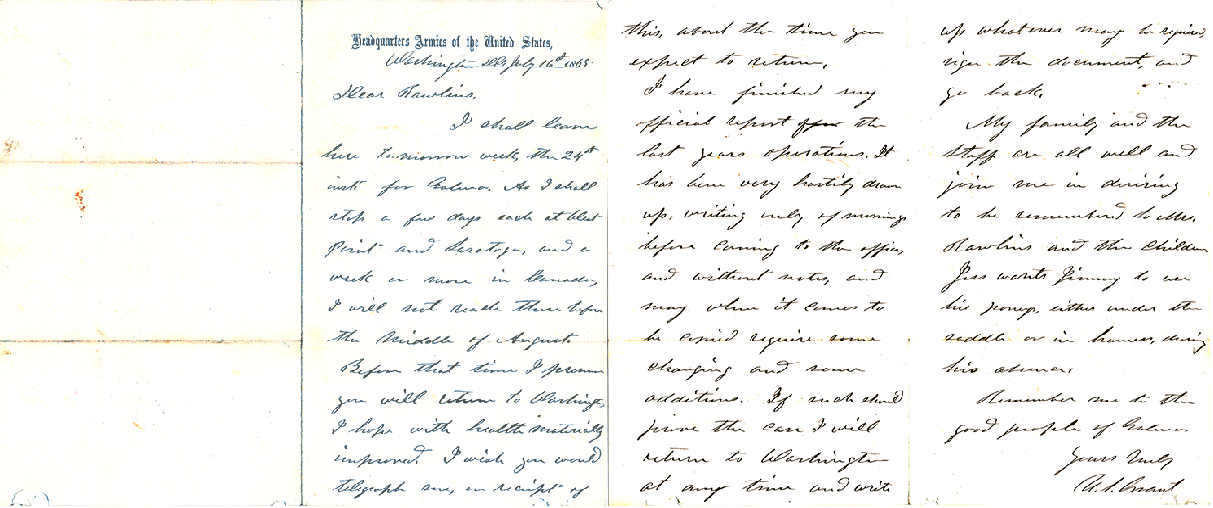 Headquarters Armies of the United States,
Washington D.C. July 16th 1865
Dear Rawlins,
I shall leave
here tomorrow week, the 24th
inst. for Galena. As I shall
stop a few days each at West
Point and Saratoga, and a
week or more in Canada,
I will not reach there before
the middle of August.
Before that time I presume
you will return to Washington,
I hope with health materially
improved. I wish you would
telegraph me, on receipt of
this, about the time you
expect to return.
I have finished my
official report of the
last years operations. It
has been very hastily drawn
up, writing only of mornings
before coming to the office,
and without notes, and
may when it comes to
be copied require some
changing and some
additions. If such should
prove the case I will
return to Washington
at any time and write
up whatever may be required
sign the document, and
go back.
My family and the
staff are all well and
join me in desiring
to be remembered to Mrs.
Rawlins and the children
Jess wants Jimmy to use
his pony, either under the
saddle or in harness, during
his absence.
Remember me to the
good people of Galena.
Yours Truly
U. S. Grant